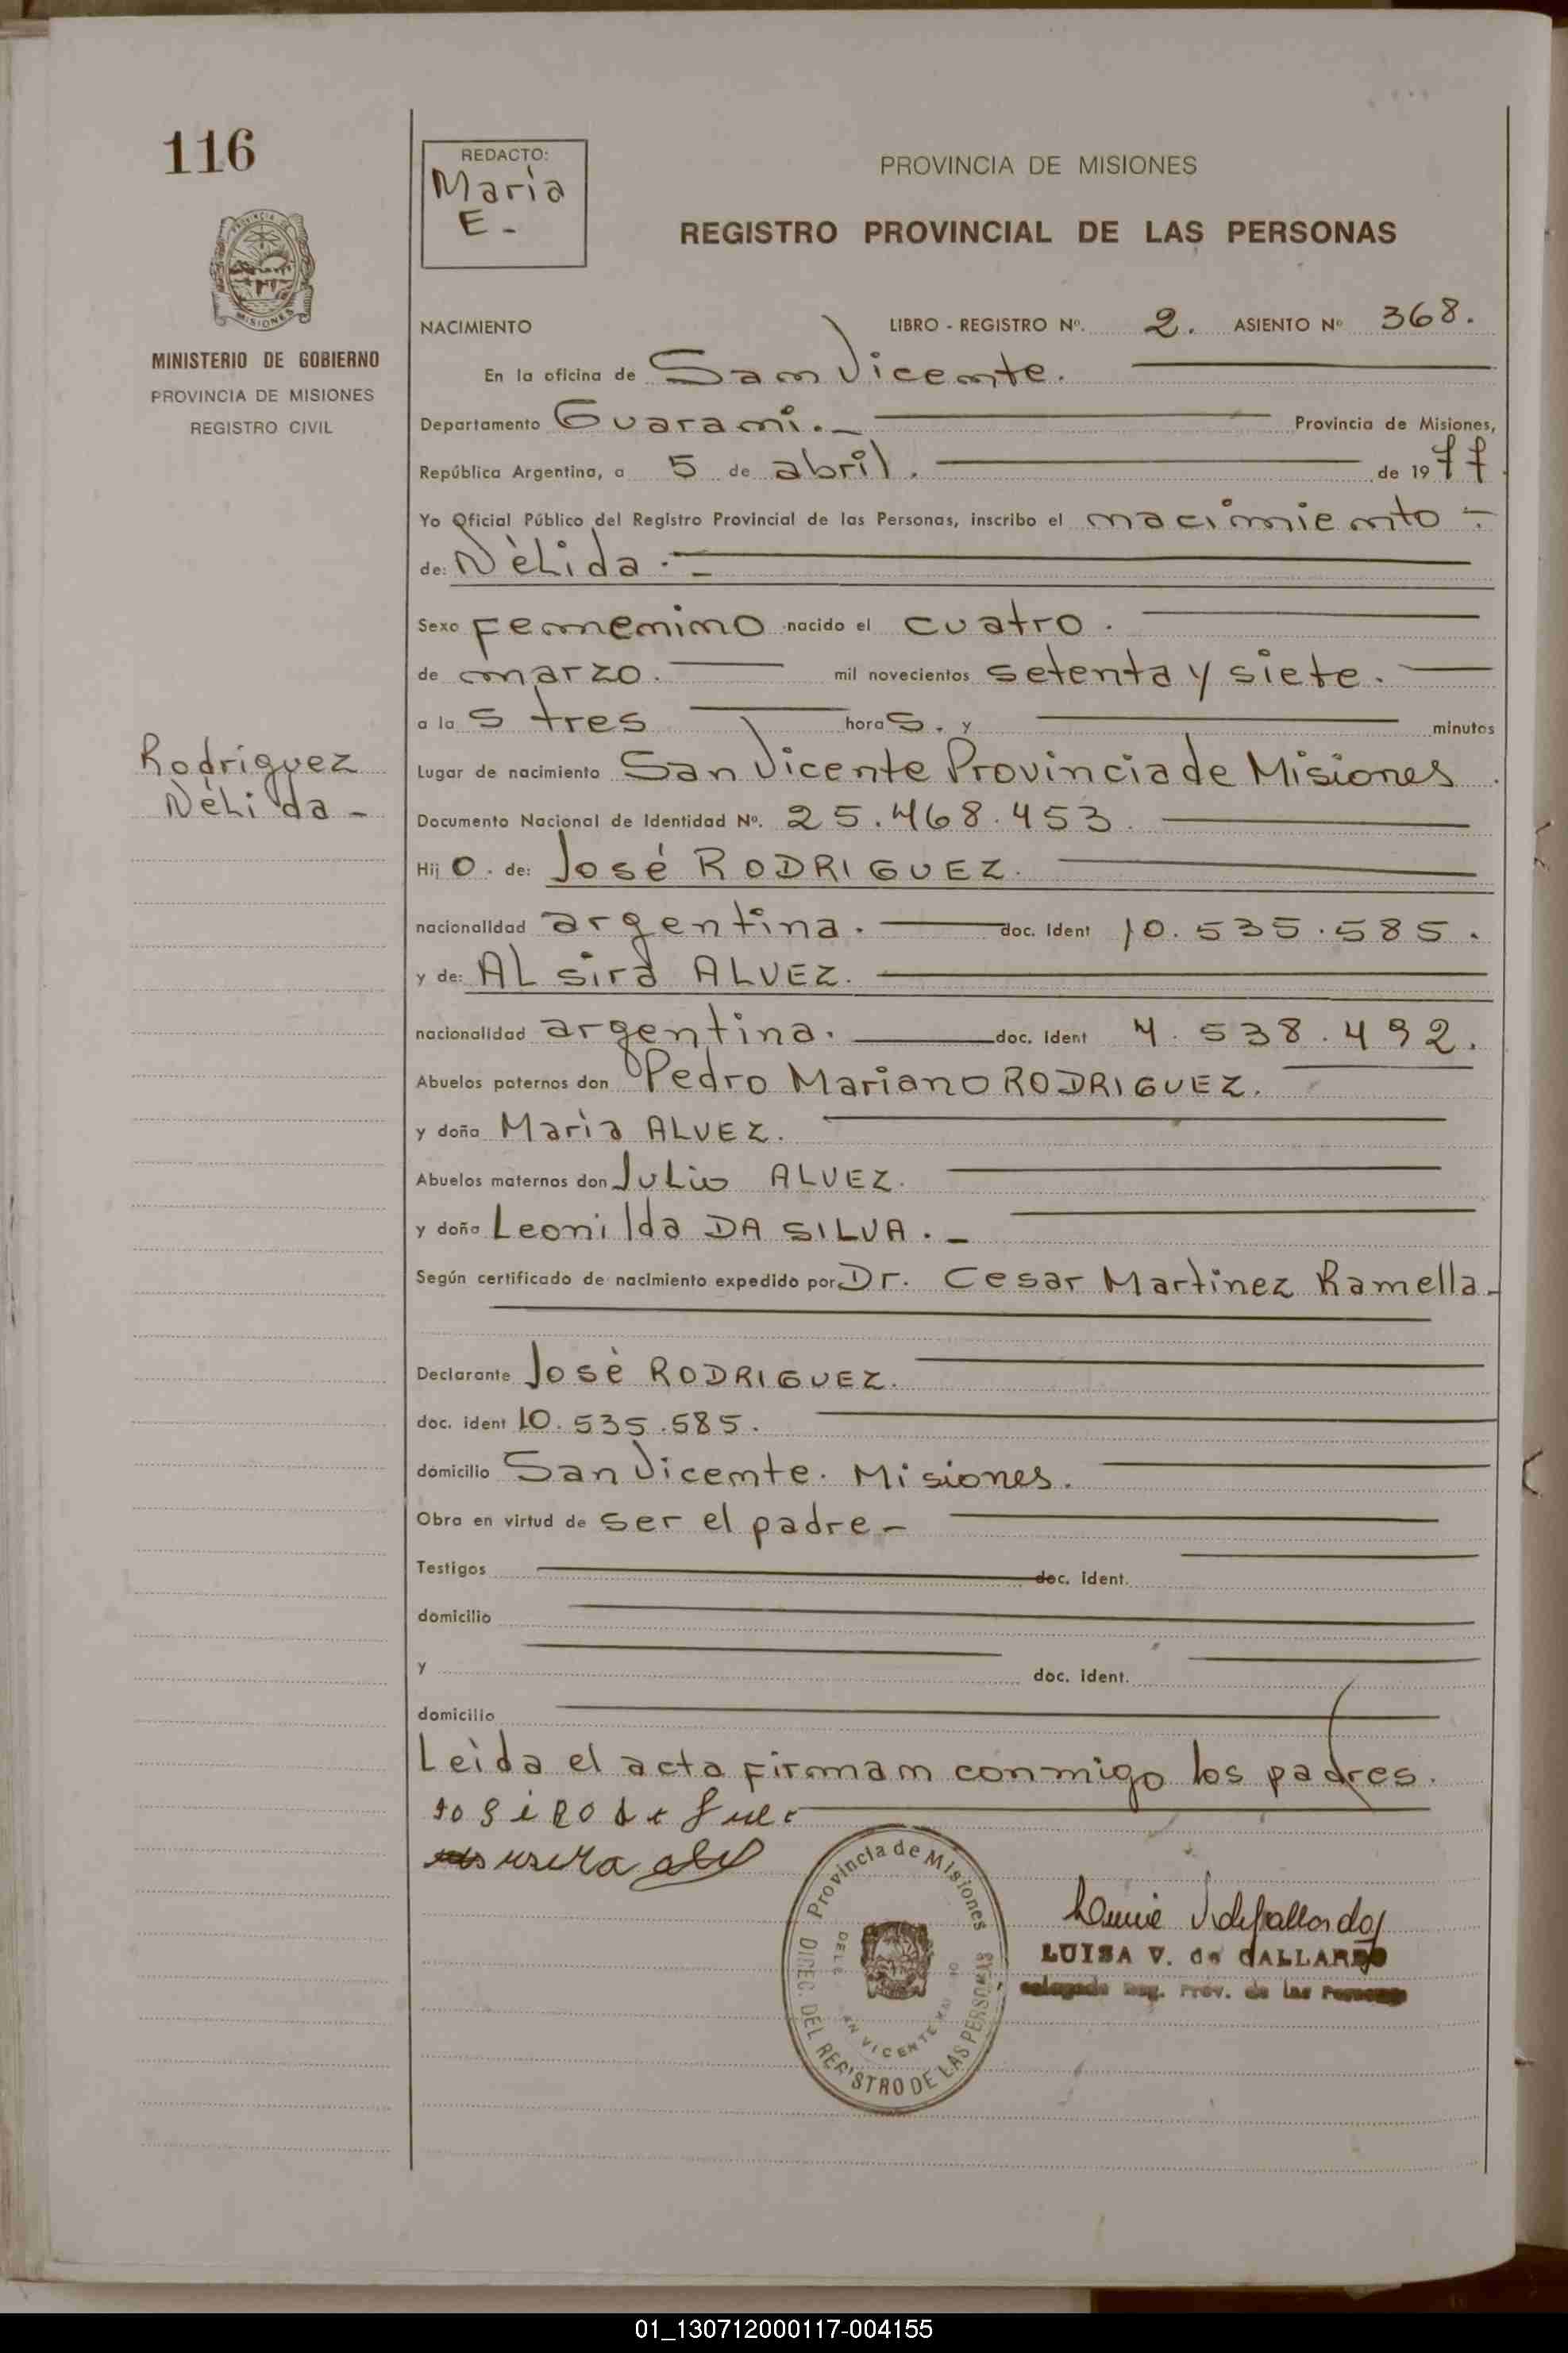 116
REDACTO:
María
E -
PROVINCIA DE MISIONES
REGISTRO PROVINCIAL DE LAS PERSONAS
MINISTERIO DE GOBIERNO
PROVINCIA DE MISIONES
REGISTRO CIVIL
NACIMIENTO LIBRO - REGISTRO Nº. 2. ASIENTO Nº 368.
En la oficina de San Vicente.
Departamento Guarani. Provincia de Misiones,
República Argentina, a 5 de abril. de 1977
Yo Oficial Público del Registro Provincial de las Personas, inscribo el nacimiento -
de: Nèlida.-
Sexo femenino nacido el cuatro.
de marzo. mil novecientos setenta y siete.
a las tres horas. y minutos
Rodríguez
Nélida -
Lugar de nacimiento San Vicente Provincia de Misiones.
Documento Nacional de Identidad Nº. 25.468.453.
Hijo. de: José RODRIGUEZ.
nacionalidad argentina. doc. Ident 10.535.585.
y de: ALsira ALVEZ.
nacionalidad argentina. doc. Ident 4.538.492.
Abuelos paternos don Pedro Mariano RODRIGUEZ.
y doña Marìa ALVEZ.
Abuelos maternos don Julio ALVEZ.
y doña Leonilda DA SILVA. -
Según certificado de nacimiento expedido por Dr. Cesar Martinez Ramella.
Declarante Josè RODRIGUEZ.
doc. ident 10.535.585.
domicilio San Vicente. Misiones.
Obra en virtud de ser el padre -
Testigos doc. ident.
domicilio
y doc. ident.
domicilio
Leìda el acta firman conmigo los padres.
Provincia de Misiones
DIREC. DEL REGISTRO DE LAS PERSONAS
LUISA V. de GALLARDO
Reg. Prov. de las Personas
01_130712000117-004155